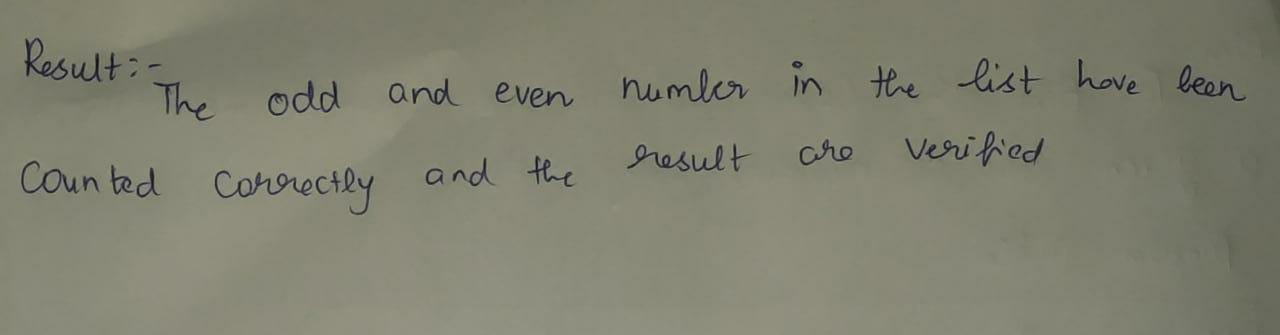 Result:-
The odd and even number in the list have been
Counted correctly and the result are verified